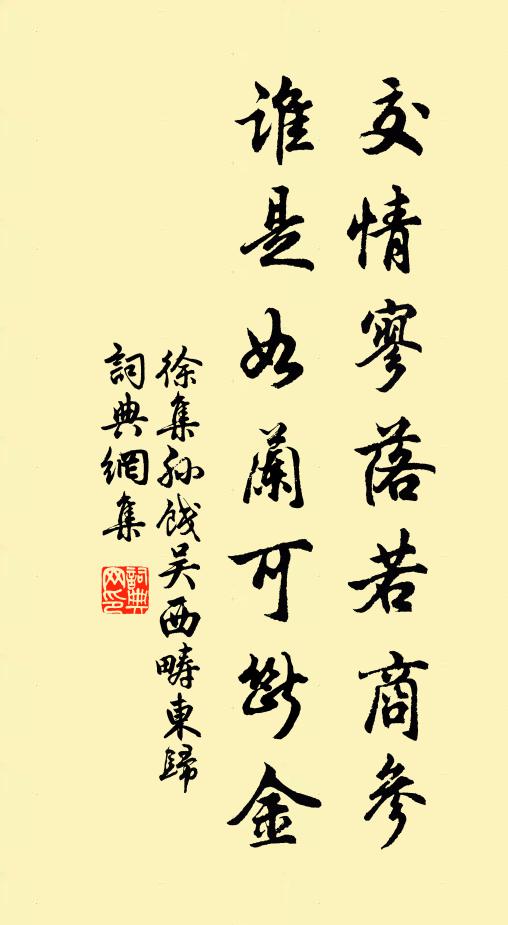 交情寥落若商參
誰是如蘭可斷金
徐集孫餞吴西疇東歸
詞典網集
詞典网印